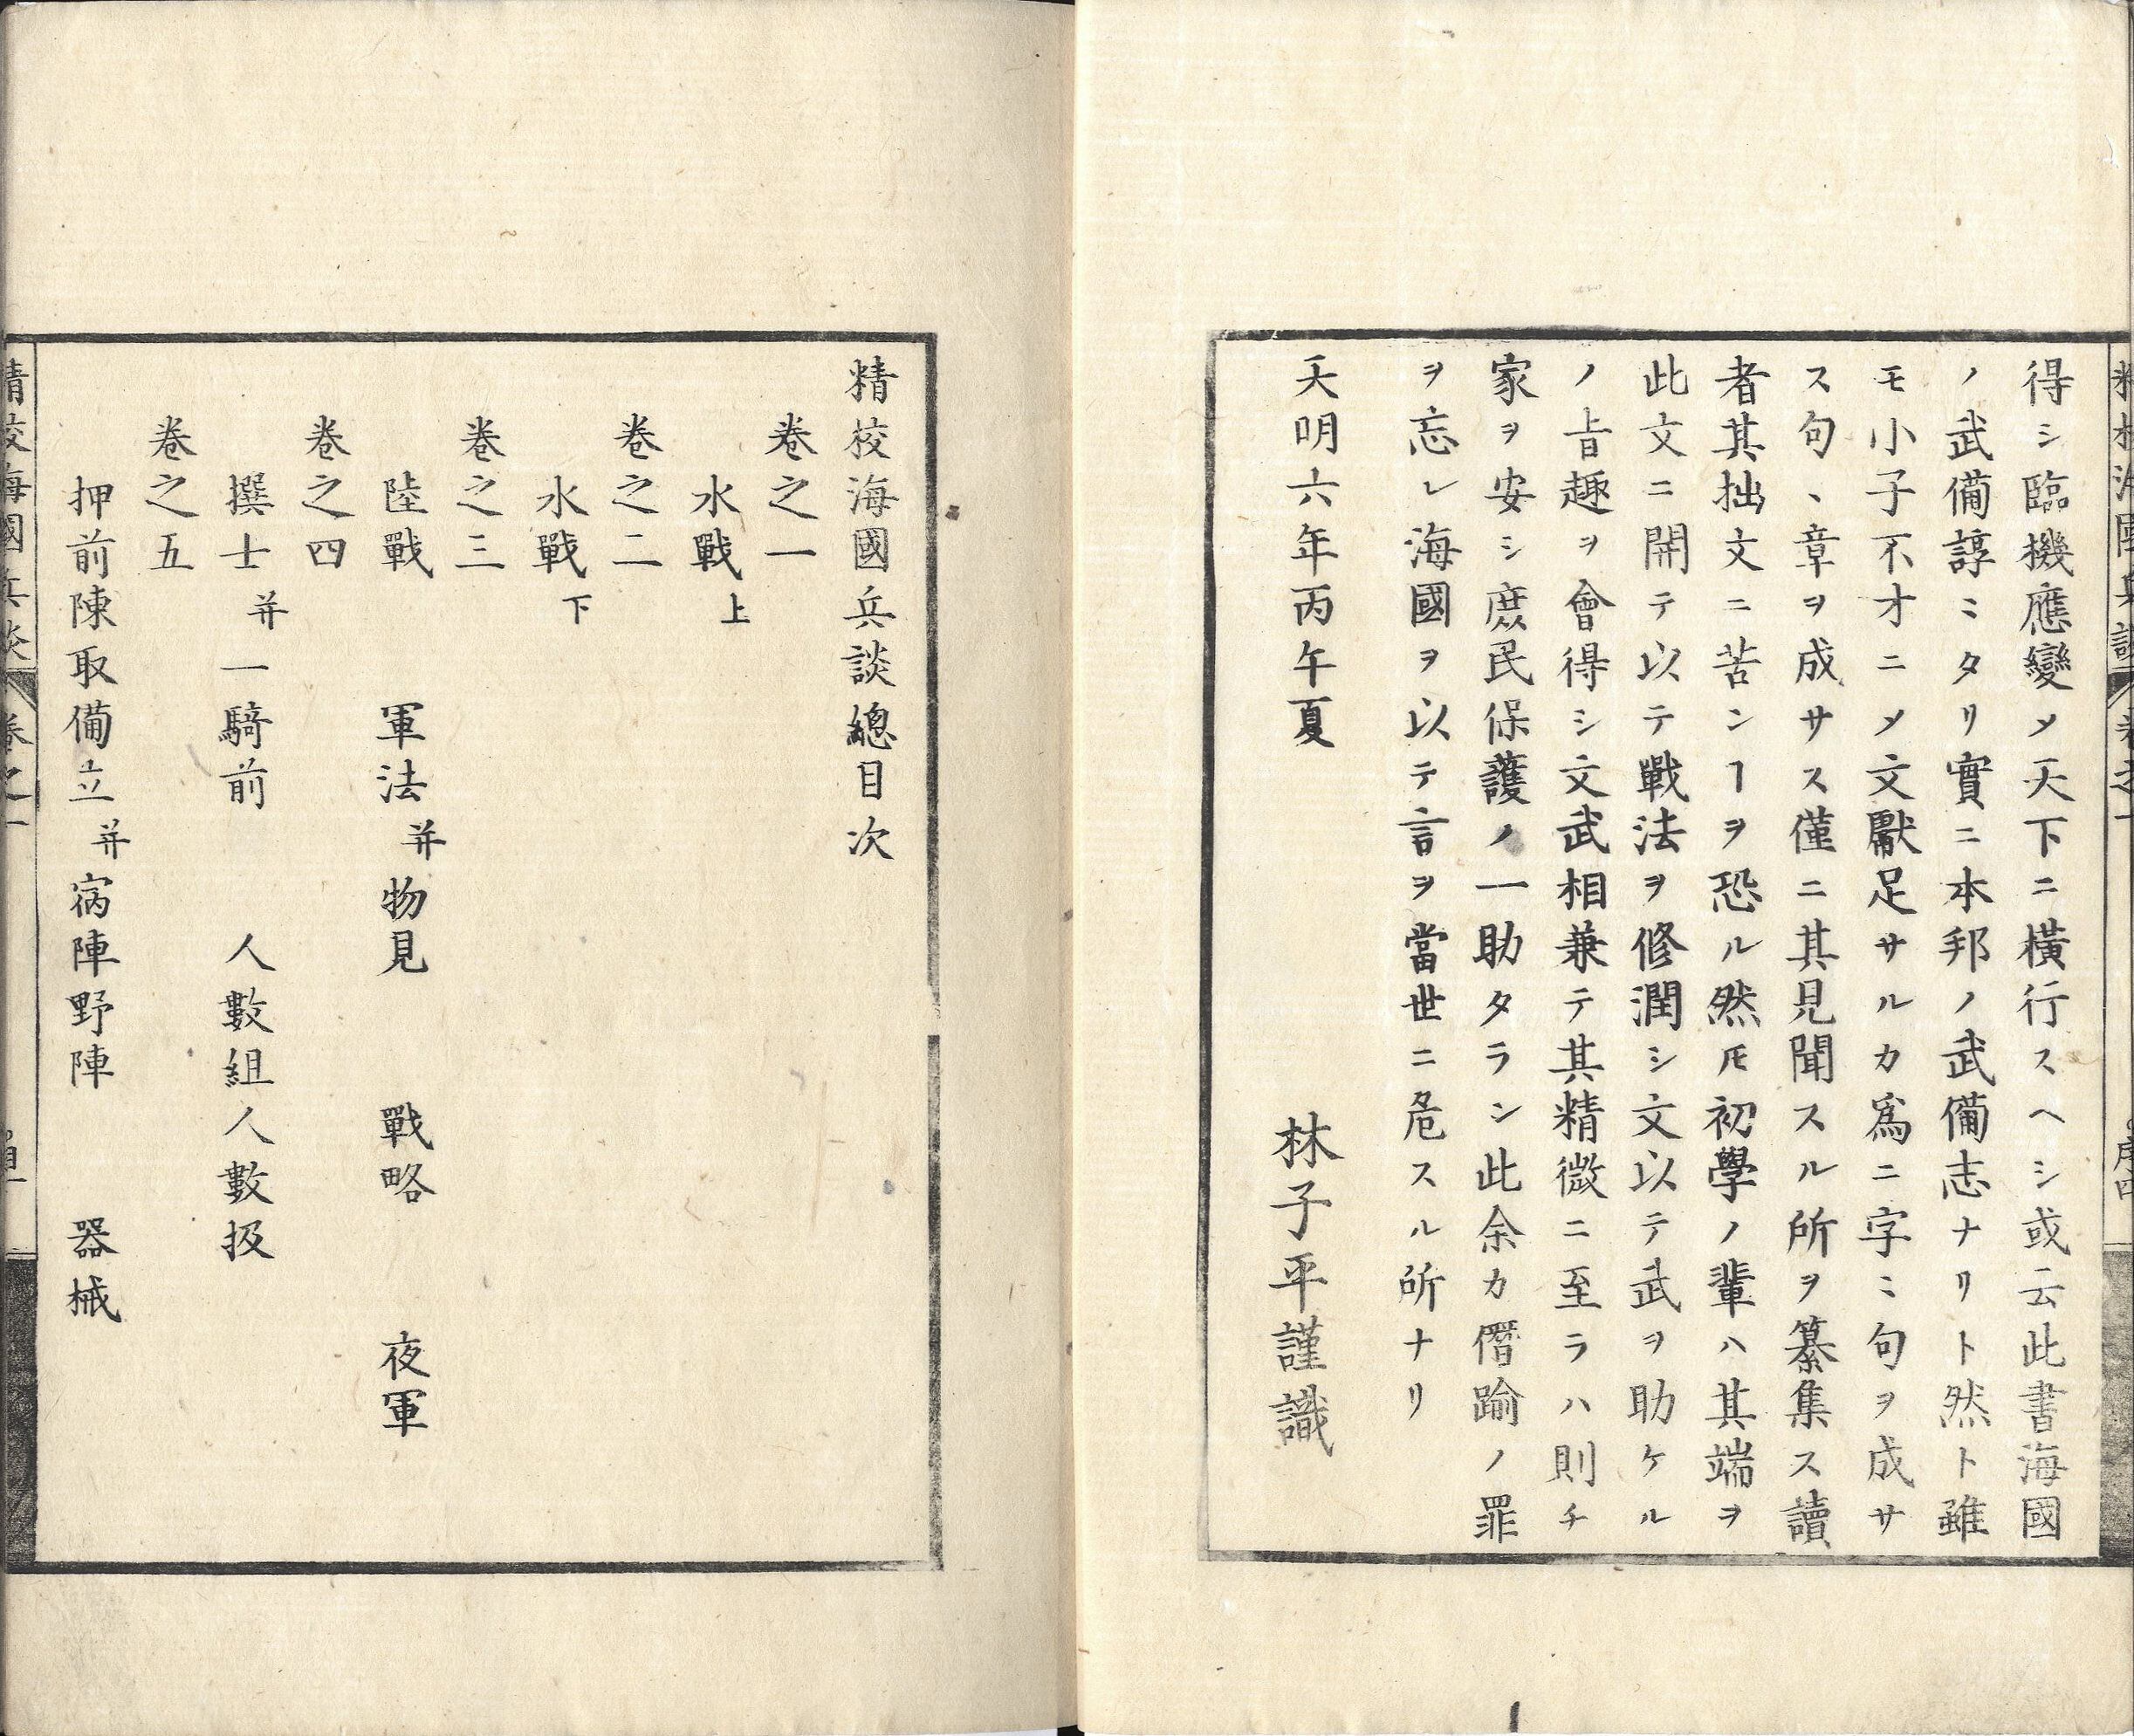 得シ臨機應變〆天下ニ橫行スヘシ或云此書海國
ノ武備諄ミタリ實ニ本邦ノ武備志ナリト然ト雖
モ小子不才ニ〆文獻足サルカ爲ニ字ミ句ヲ成サ
ス句、章ヲ成サス僅ニ其見聞スル所ヲ纂集ス讀
者其拙文ニ苦ンヿヲ恐ル然𪜈初學ノ輩ハ其端ヲ
此文ニ開テ以テ戰法ヲ修潤シ文以テ武ヲ助ケル
ノ旨趣ヲ會得シ文武相兼テ其精微ニ至ラハ則チ
家ヲ安シ庶民保護ノ一助タラシ此余カ僭踰ノ罪
ヲ忘レ海國ヲ以テ言ヲ當世ニ危スル所ナリ
天明六年丙午夏
林子平謹識
精校海國兵談總目次
卷之一
水戰上
卷之二
水戰下
卷之三
陸戰 軍法并物見 戰略 夜軍
卷之四
撰士并一騎前 人數組人數扱
卷之五
押前陳取備立并宿陣野陣 器械
精校海國兵談 卷之一